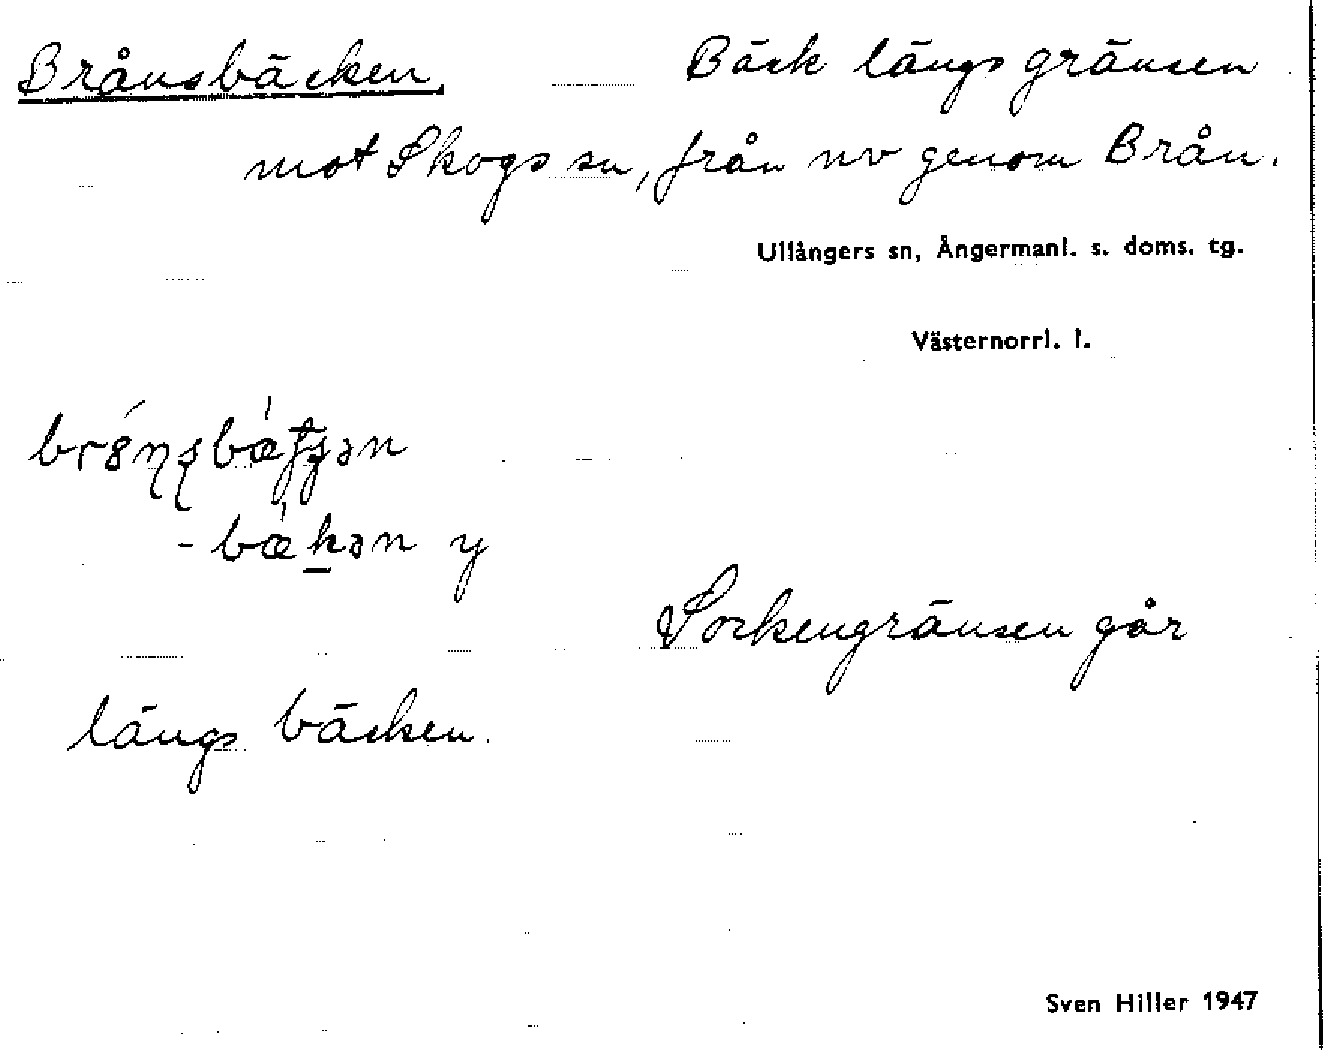 Brånsbäcken, Bäck längs gränsen
mot Skogs sn, från nv genom Brån.
Ullångers sn, Ångermanl. s. doms. tg.
Västernorrl. l.
-bækən y
Sockengränsen går
längs bäcken.
Sven Hiller 1947